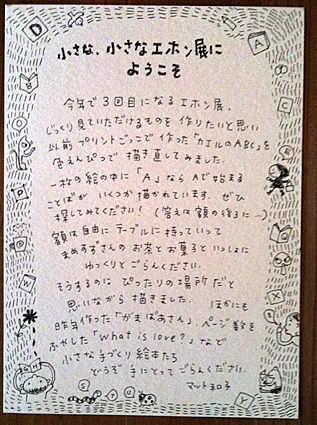 小さな、小さなエホン展に
ようこそ
今年で3回目になるエホン展、
じっくり見ていただけるものを作りたいと思い
以前プリントごっこで作った「カエルのABC」を
色えんぴつで描き直してみました。
一枚の絵の中に「A」ならAで始まる
ことばがいくつか描かれています。ぜひ
探してみてください!(答えは額の後ろに…)
額は自由にテーブルに持っていって
まめすずさんのお茶とお菓子といっしょに
ゆっくりとごらんください。
そうするのにぴったりの場所だと
思いながら描きました。ほかにも
昨年作った「がまばあさん」、ページ数を
ふやした「What is love?」など
小さな手づくり絵本たち
どうぞ手にとってごらんください。
D
A
B
C